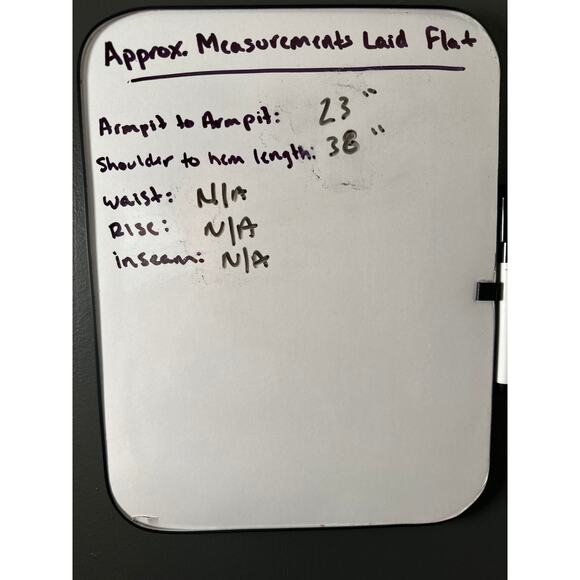 Approx. Measurements Laid Flat
Armpit to Armpit: 23"
Shoulder to hem length: 38"
waist: N/A
Rise: N/A
inseam: N/A